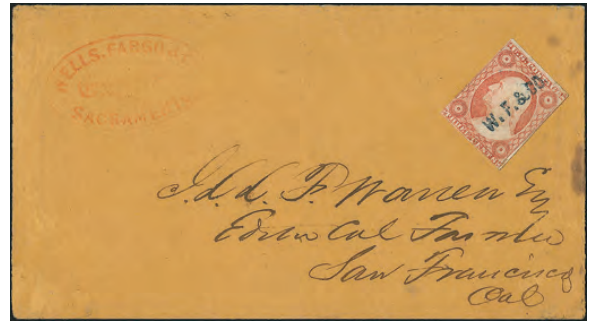 WELLS, FARGO & C
Express
SACRAMENTO
W. F. & CO.
Warren Esq
Editor Cal Farmer
San Francisco
Cal